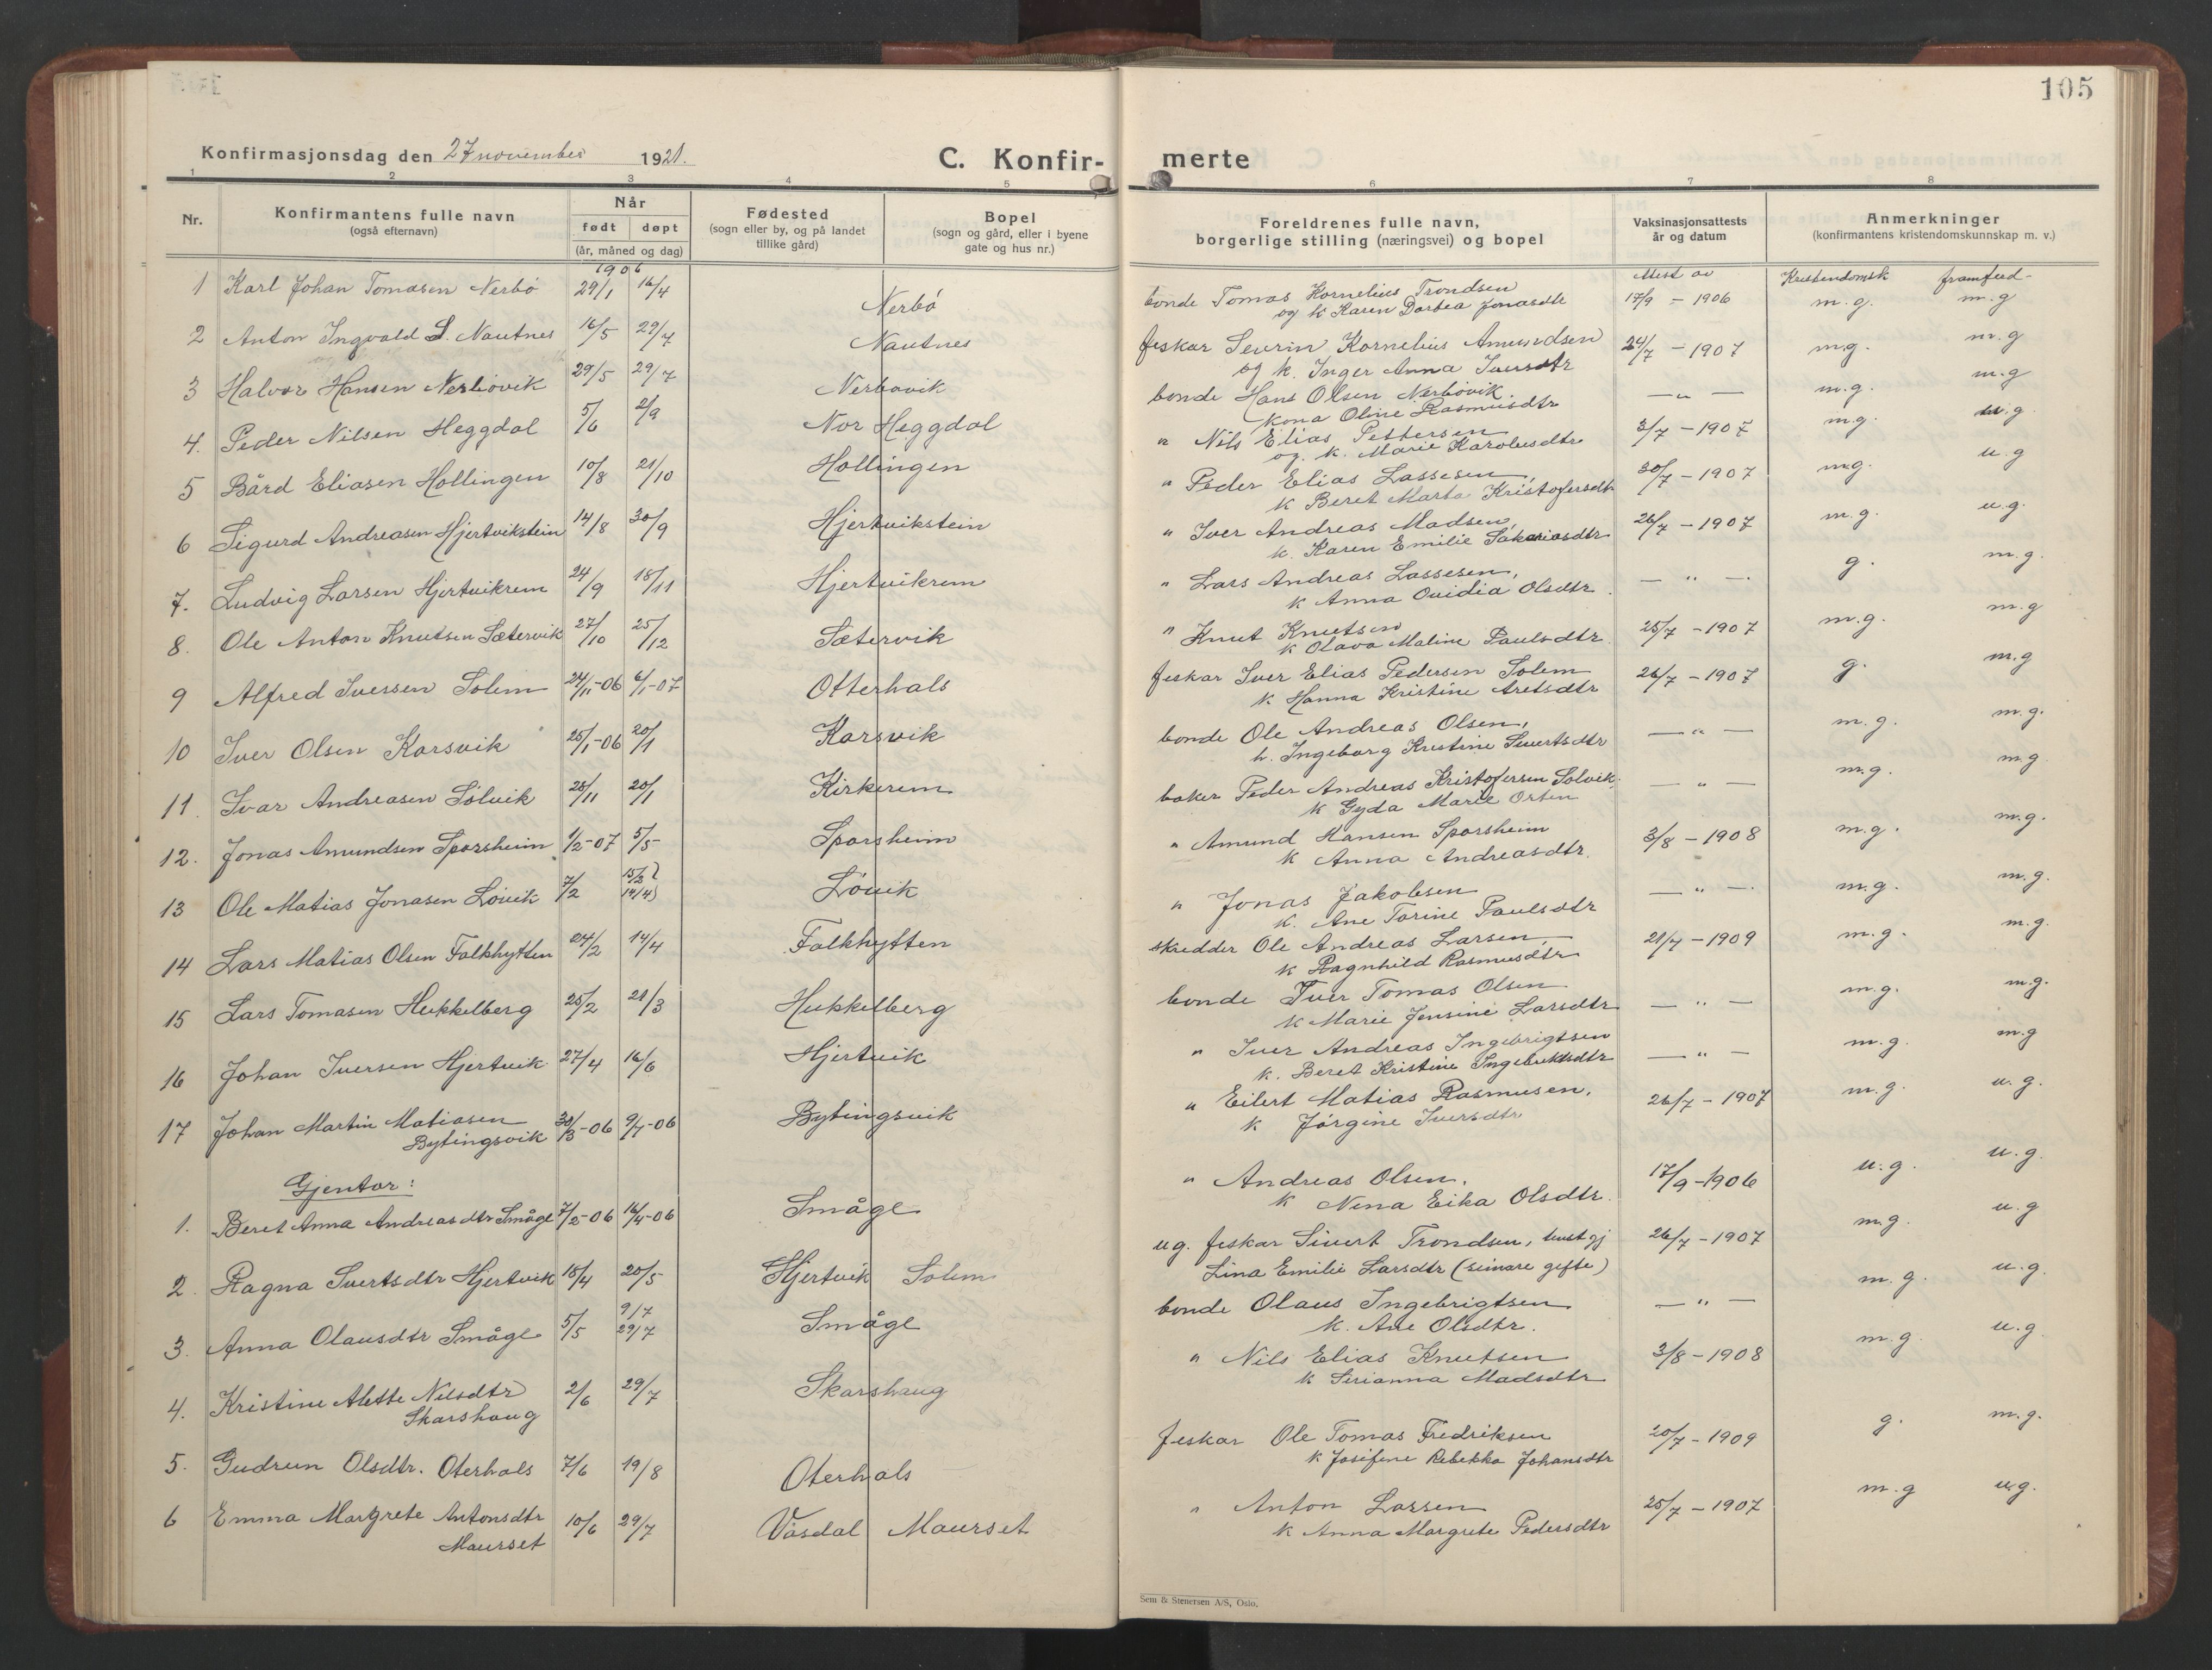 105
Konfirmasjonsdag den 27 november 1921.
C. Konfir-merte
1 2 3 4 5 6 7 8
Nr.
Konfirmantens fulle navn
(også efternavn)
Når
født døpt
(år, måned og dag)
Fødested
(sogn eller by, og på landet
tillike gård)
Bopel
(sogn og gård, eller i byene
gate og hus nr.)
Foreldrenes fulle navn,
borgerlige stilling (næringsvei) og bopel
Vaksinasjonsattests
år og datum
Anmerkninger
(konfirmantens kristendomskunnskap m. v.)
1906
Attest av Kristendomsk framferd-
1 Karl Johan Tomasen Nerbø 29/1 16/4 Nerbø bonde Tomas Kornelius Trondsen 17/9 - 1906 m.g. m.g
og k Karen Dorbea Jonasdtr
2 Anton Ingvald S. Nautnes 16/5 29/7 Nautnes feskar Sevrin Kornelius Amundsen 24/7 - 1907 m.g. m.g
og k. Inger Anna Iversdtr
3 Halvor Hansen Nerbøvik 29/5 29/7 Nerbøvik bonde Hans Olsen Nerbøvik — " — m.g. m.g
kona Oline Rasmusdtr
4. Peder Nilsen Heggdal 5/6 2/9 Nor Heggdal " Nils Elias Pettersen 3/7 - 1907 m.g. m.g.
og. k. Marie Karolusdtr
5 Bård Eliasen Hollingen 10/8 21/10 Hollingen " Peder Elias Lassesen, 30/7 - 1907 m.g. u.g
k Beret Marta Kristofersdtr
6 Sigurd Andreasen Hjertvikstein 14/8 30/9 Hjertvikstein " Iver Andreas Madsen, 26/7 - 1907 m.g. u.g.
k. Karen Emilie Sakariasdtr
7. Ludvig Larsen Hjertvikrem 24/9 18/11 Hjertvikrem " Lars Andreas Lassesen, — " — g. m.g.
k Anna Ovidia Olsdtr.
8. Ole Anton Knutsen Sætervik 27/10 25/12 Sætervik " Knut Knutsen 25/7 - 1907 m.g. m.g
k Olava Maline Paulsdtr
9 Alfred Iversen Solem 24/11-06 6/1-07 Otterhals feskar Iver Elias Pedersen Solem 26/7 - 1907 g. m.g
k Hanna Kristine Aretsdtr
10 Iver Olsen Korsvik 25/1-06 20/1 Korsvik bonde Ole Andreas Olsen, — " — m.g. m.g.
h. Ingeborg Kristine Sivertsdtr
11. Ivar Andreasen Sølvik 28/11 20/1 Kirkerem baker Peder Andreas Kristofersen Solvik, — " — m.g. m.g
k Gyda Marie Orten
12. Jonas Amundsen Sporsheim 1/2-07 5/5 Sporsheim " Amund Hansen Sporsheim 3/8 - 1908 m.g. m.g.
k Anna Andreasdtr.
13 Ole Matias Jonasen Løvik 7/2 Løvik " Jonas Jakobsen — " — m.g. m.g.
k. Ane Torine Paulsdtr
14 Lars Matias Olsen Falkhytten 24/2 14/4 Falkhytten skredder Ole Andreas Larsen, 21/7 - 1909 m.g. m.g.
k Ragnhild Rasmusdtr
15 Lars Tomasen Hukkelberg 25/2 21/3 Hukkelberg bonde Iver Tomas Olsen — " — m.g. m.g.
k Marie Jensine Larsdtr
16 Johan Iversen Hjertvik 27/4 16/6 Hjertvik " Iver Andreas Ingebrigtsen — " — m.g. m.g
k. Beret Kristine Ingebriktsdtr
17 Johan Martin Matiasen 30/3-06 9/7-06 Bytingsvik " Eilert Matias Rasmusen, 26/7 - 1907 m.g. u.g.
Bytingsvik k Jørgine Iversdtr
Gjentor:
1. Beret Anna Andreasdtr Småge 7/2-06 16/4-06 Småge " Andreas Olsen, 17/9-1906 u.g. u.g.
k Nena Eika Olsdtr.
2. Ragna Sivertsdtr Hjertvik 18/4 20/5 Hjertvik Solem ug. feskar Sivert Trondsen, tenstgj 26/7 - 1907 m.g. u.g
Lina Emilie Larsdtr (seinare gifte)
3. Anna Olausdtr Småge 5/5 9/7 29/7 Småge bonde Olaus Ingebrigtsen — " — m.g. u.g.
k. Ane Olsdtr.
4. Kristine Alette Nilsdtr 2/6 29/7 Skarshaug " Nils Elias Knutsen 3/8 - 1908 m.g. u.g.
Skarshaug k Serianna Madsdtr
5. Gudrun Olsdtr. Oterhals 7/6 19/8 Oterhals feskar Ole Tomas Fredriksen 20/7 - 1909 g. m.g.
k Josefine Rebekka Johansdtr
6 Emma Margrete Antonsdtr 10/6 29/7 Våsdal Maurset " Anton Larsen 25/7 - 1907 m.g u.g.
Maurset k Anna Margrete Pedersdtr
Sem & Stenersen A/S, Oslo.